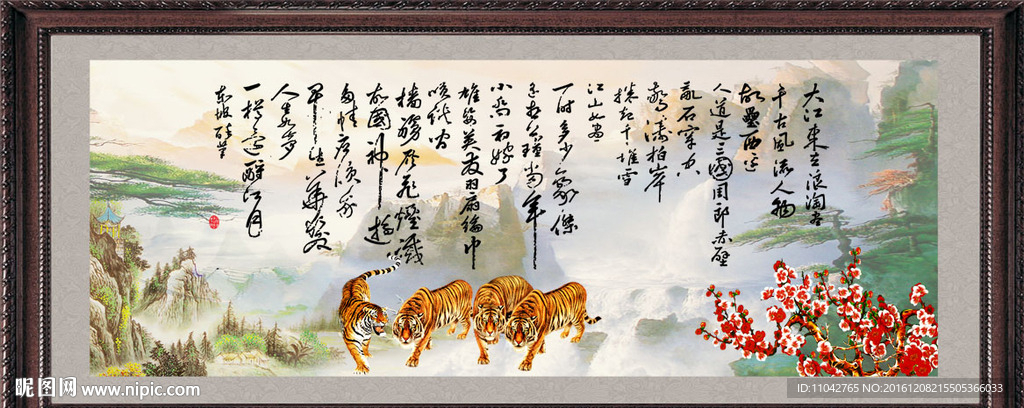 大江東去浪淘盡
千古風流人物
故壘西邊
人道是三國周郎赤壁
亂石穿空
驚濤拍岸
捲起千堆雪
江山如畫
一時多少豪傑
遙想公瑾當年
小喬初嫁了
雄姿英發羽扇綸巾
談間
檣櫓灰飛煙滅
故國神遊
多情應笑我
早生華髮
人生如夢
一樽還酹江月
東坡醉筆
昵图网 www.nipic.com
ID:11042765 NO:20161208215505366033